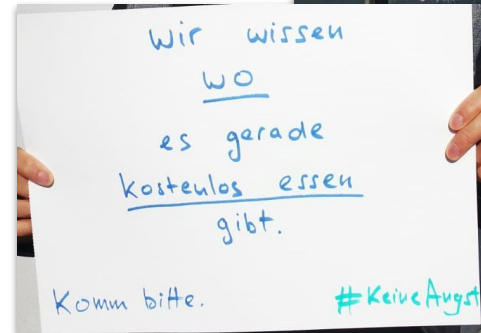 Wir wissen
wo
es gerade
kostenlos essen
gibt.
Komm bitte.
#KeineAngst